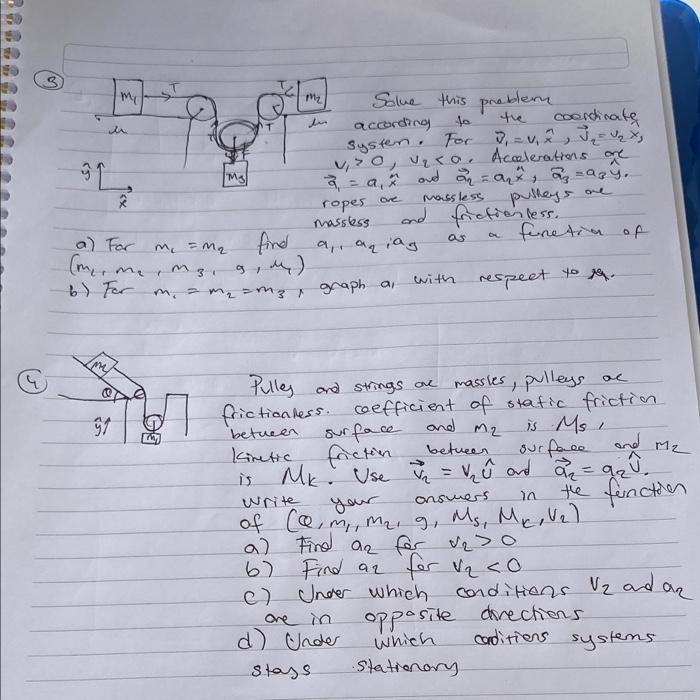 3
m1 T T m2
μ μ
T T
m3
ŷ
x̂
Solve this problem
according to the coordinate
system. For v⃗1 = v1 x̂, v⃗2 = v2 x̂,
v1 > 0, v2 < 0. Accelerations are
a⃗1 = a1 x̂ and a⃗2 = a2 x̂, a⃗3 = a3 ŷ.
ropes are massless pulleys are
massless and frictionless.
a) For m1 = m2 find a1, a2, a3 as a function of
(m1, m2, m3, g, μ)
b) For m1 = m2 = m3, graph a1 with respect to μ.
4
m2
θ
ŷ
m1
Pulley and strings are massles, pulleys are
frictionless. coefficient of static friction
between surface and m2 is Ms,
kinetic friction between surface and m2
is Mk. Use v⃗2 = v2 û and a⃗2 = a2 û.
write your answers in the function
of (θ, m1, m2, g, Ms, Mk, v2)
a) Find a2 for v2 > 0
b) Find a2 for v2 < 0
c) Under which conditions v2 and a2
are in opposite directions
d) Under which conditions systems
stays stationary